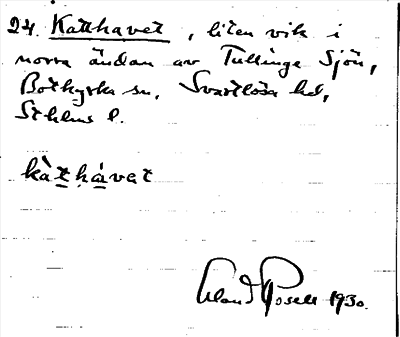 24. Katthavet, liten vik i
norra ändan av Tullinge Sjön,
Botkyrka sn, Svartlösa hd,
Sthlms l.
kàt̠hà̠vet
Erland Rosell 1930.